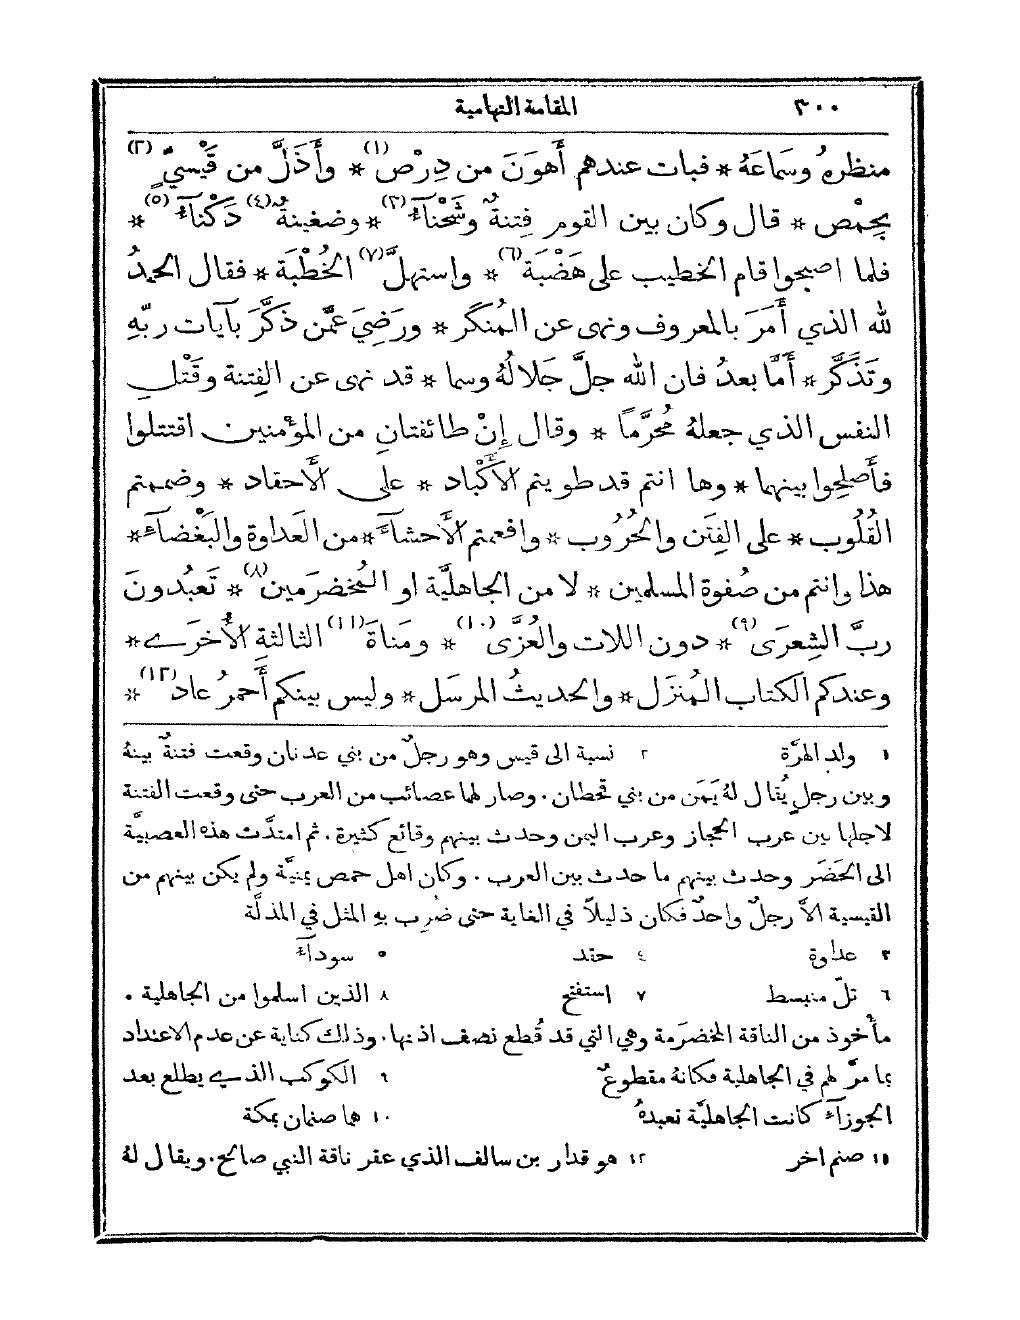 ٣٠٠ المقامة التهامية
منظرهُ وسَمَاعَهُ * فبات عندهم أَهوَنَ من دِرْصٍ (١) * وأَذَلَّ من قَيْسيٍّ (٢)
بحِمْص * قال وكان بين القوم فِتنةٌ وشَحْنآءُ (٣) * وضغينةٌ (٤) دَكْنآءُ (٥) *
فلما اصبحوا قام الخطيب على هَضْبَة (٦) * واستهلَّ (٧) الخُطْبَة * فقال الحمدُ
لله الذي أَمَرَ بالمعروف ونهى عن المُنكَر * ورَضِيَ عمَّن ذكَّرَ بآيات ربّهِ
وتَذَكَّر * أَمَّا بعدُ فان الله جلَّ جَلالُهُ وسما * قد نهى عن الفِتنة وقَتْل
النفس الذي جعلهُ مُحرَّماً * وقال إِنْ طائفتانِ من المؤْمنين اقتتلوا
فأَصلِحوا بينهما * وها انتم قد طويتم الأَكْباد * على الأَحقاد * وضممتم
القُلُوب * على الفِتَن والحُرُوب * وافعمتم الأَحشآءَ * من العَداوة والبَغْضآء *
هذا وانتم من صُفوة المسلمين * لا من الجاهليَّة او المُخضرَمين (٨) * تَعبُدونَ
ربَّ الشِعرَى (٩) * دون اللات والعُزَّى (١٠) * ومَناةَ (١١) الثالثةِ الأُخرَى *
وعندكم الكتاب المُنزَل * والحديثُ المرسَل * وليس بينكم أَحمرُ عاد (١٢) *
١ ولد الهرَّة ٢ نسبة الى قيس وهو رجلٌ من بني عدنان وقعت فتنةٌ بينهُ
وبين رجلٍ يُقال لهُ يَمَن من بني قحطان. وصار لهما عصائب من العرب حتى وقعت الفتنة
لاجلها بين عرب الحجاز وعرب اليمن وحدث بينهم وقائع كثيرة. ثم امتدَّت هذه العصبيَّة
الى الحَضَر وحدث بينهم ما حدث بين العرب. وكان اهل حمص يمنيَّة ولم يكن بينهم من
القيسية الاَّ رجلٌ واحدٌ فكان ذليلاً في الغاية حتى ضُرب بهِ المثل في المذلَّة
٣ عداوة ٤ حقد ٥ سودآءُ
٦ تلّ منبسط ٧ استفتح ٨ الذين اسلموا من الجاهلية.
مأخوذ من الناقة المخضرَمة وهي التي قد قُطع نصف اذنها. وذلك كناية عن عدم الاعتداد
بما مرَّ لهم في الجاهلية فكانهُ مقطوعٌ ٩ الكوكب الذي يطلع بعد
الجوزآءِ كانت الجاهليَّة تعبدهُ ١٠ هما صنمان بمكة
١١ صنم اخر ١٢ هو قدار بن سالف الذي عقر ناقة النبي صالح. ويقال لهُ